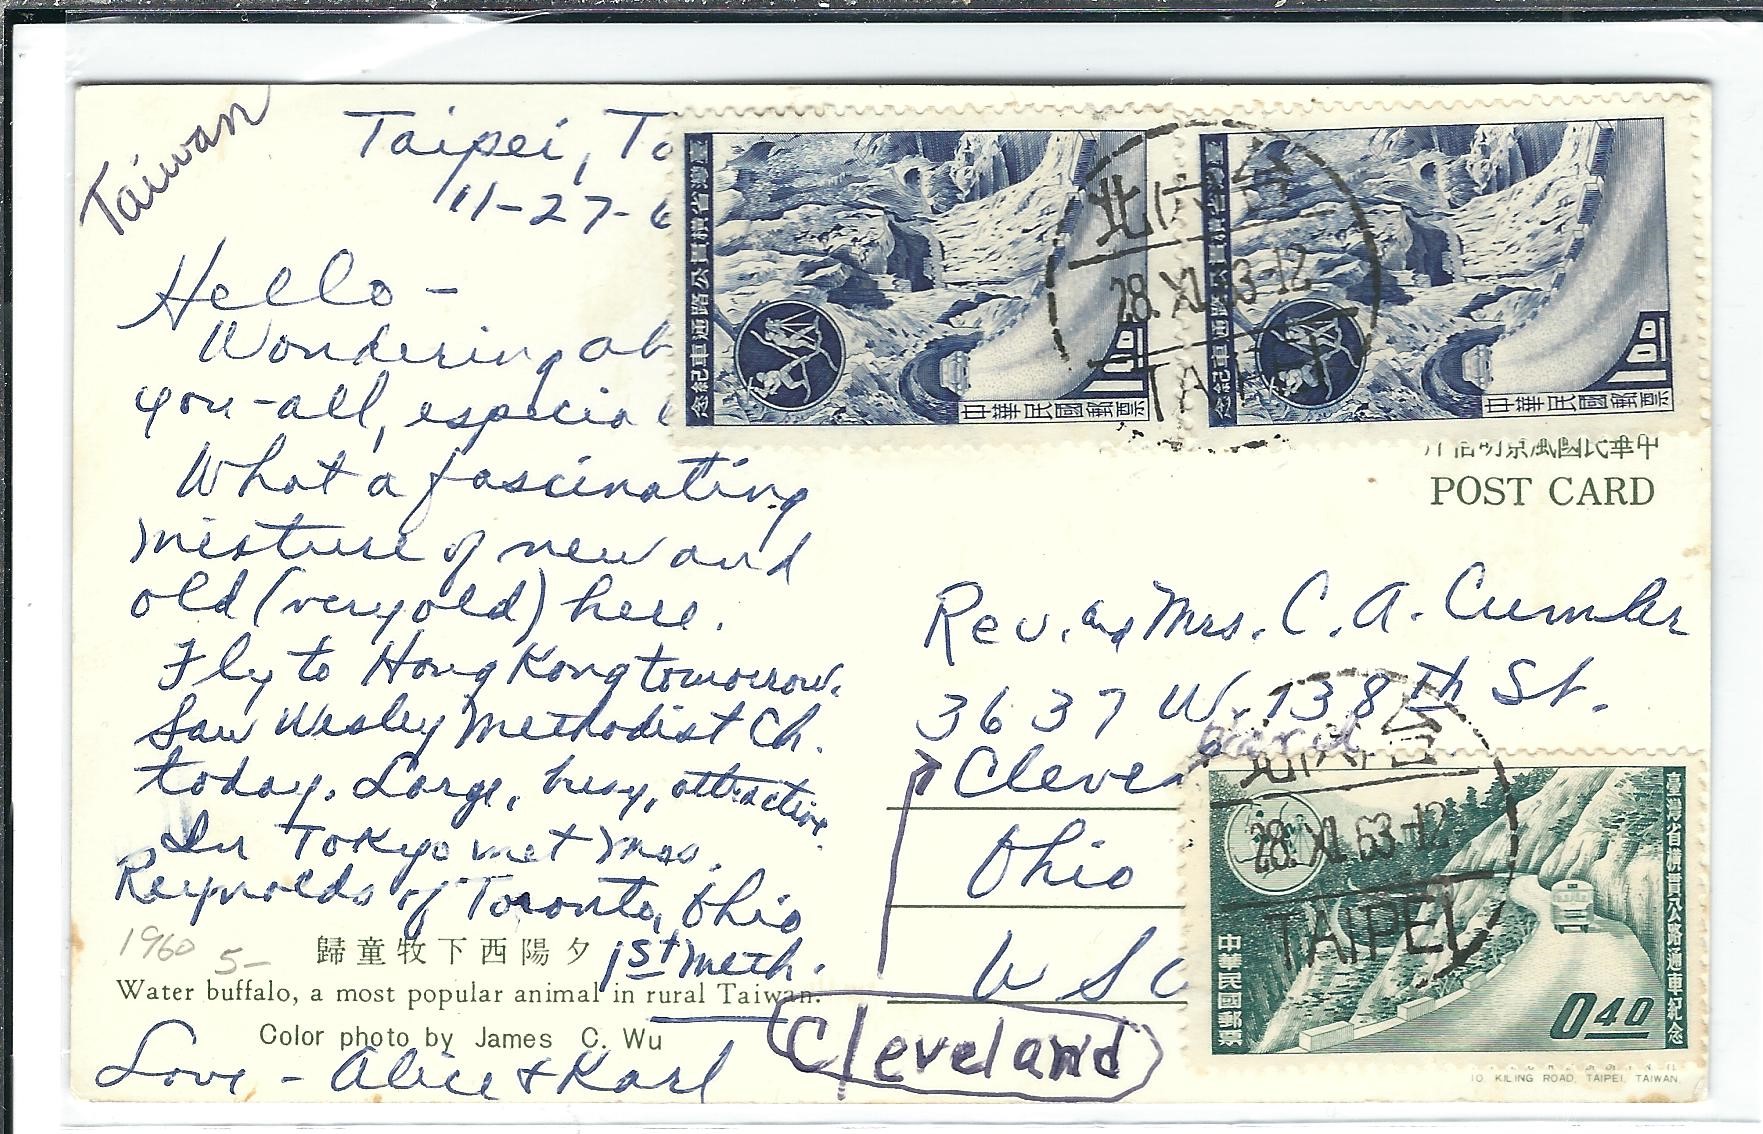 Taiwan
Taipei, Ta
11-27-6
Hello -
Wondering ab
you-all, especial
What a fascinating
mixture of new and
old (very old) here.
Fly to Hong Kong tomorrow.
Saw Wesley Methodist Ch.
today. Large, busy, attractive.
In Tokyo met Mrs.
Reynolds of Toronto, Ohio
1st Meth.
1960 5-
歸童牧下西陽夕
Water buffalo, a most popular animal in rural Taiwan.
Color photo by James C. Wu
Love - Alice & Karl
臺灣省橫貫公路通車紀念
1.00
中華民國郵票
臺灣省橫貫公路通車紀念
1.00
中華民國郵票
北 台
28. XI. 63-12
TAIPEI
中華民國風景明信片
POST CARD
Rev. and Mrs. C. A.
3637 W. 138th St.
Cleve
Ohio
U S
Cleveland
北 台
28. XI. 63-12
TAIPEI
臺灣省橫貫公路通車紀念
中華民國郵票
0.40
10 KILING ROAD, TAIPEI, TAIWAN